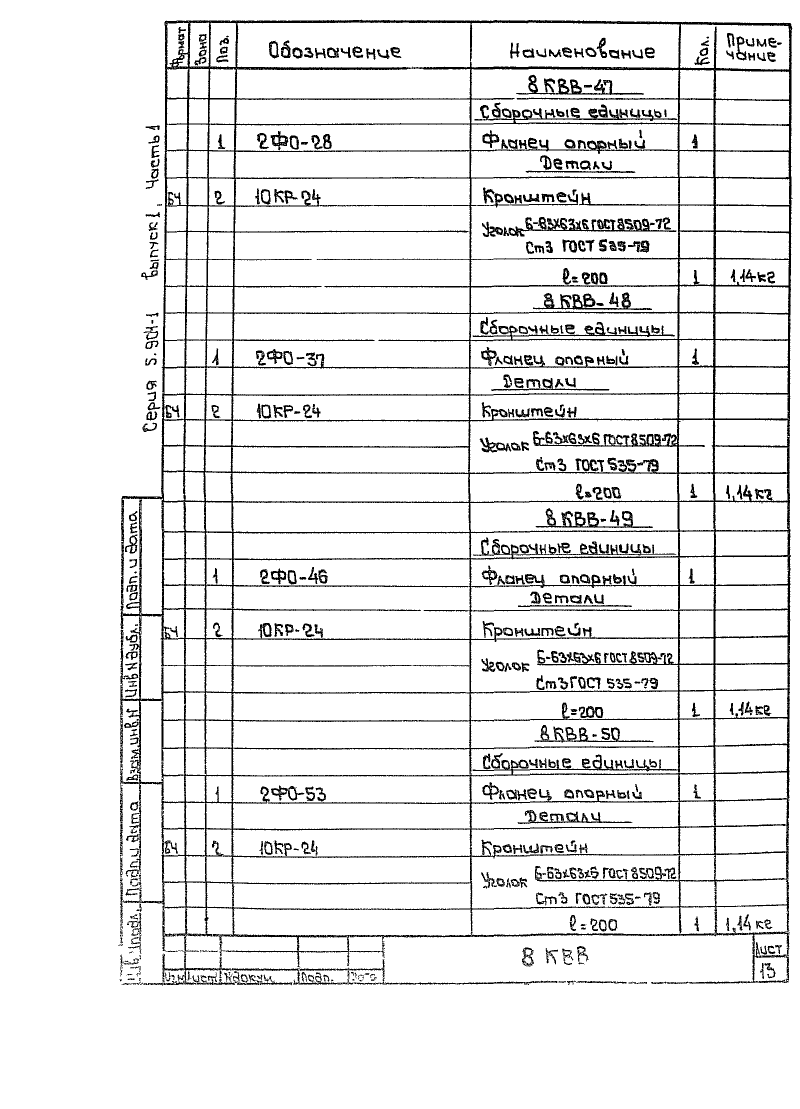 Формат Зона Поз. Обозначение Наименование Кол. Приме-
чание
8 КВВ-47
Сборочные единицы
1 2ФО-28 Фланец опорный 1
Детали
БЧ 2 10КР-24 Кронштейн
Уголок Б-63х63х6 ГОСТ 8509-72
Ст3 ГОСТ 535-79
ℓ=200 1 1,14кг
8 КВВ-48
Сборочные единицы
1 2ФО-37 Фланец опорный 1
Детали
БЧ 2 10КР-24 Кронштейн
Уголок Б-63х63х6 ГОСТ 8509-72
Ст3 ГОСТ 535-79
ℓ=200 1 1,14кг
8 КВВ-49
Сборочные единицы
1 2ФО-46 Фланец опорный 1
Детали
БЧ 2 10КР-24 Кронштейн
Уголок Б-63х63х6 ГОСТ 8509-72
Ст3 ГОСТ 535-79
ℓ=200 1 1,14кг
8 КВВ-50
Сборочные единицы
1 2ФО-53 Фланец опорный 1
Детали
БЧ 2 10КР-24 Кронштейн
Уголок Б-63х63х5 ГОСТ 8509-72
Ст3 ГОСТ 535-79
ℓ=200 1 1,14кг
8 КВВ
Лист
13
Изм Лист № докум. Подп. Дата
Серия 5.904-1 Выпуск 1, Часть 1
Подп. и дата
Инв № дубл.
Взам. инв. №
Подп. и дата
Инв № подл.